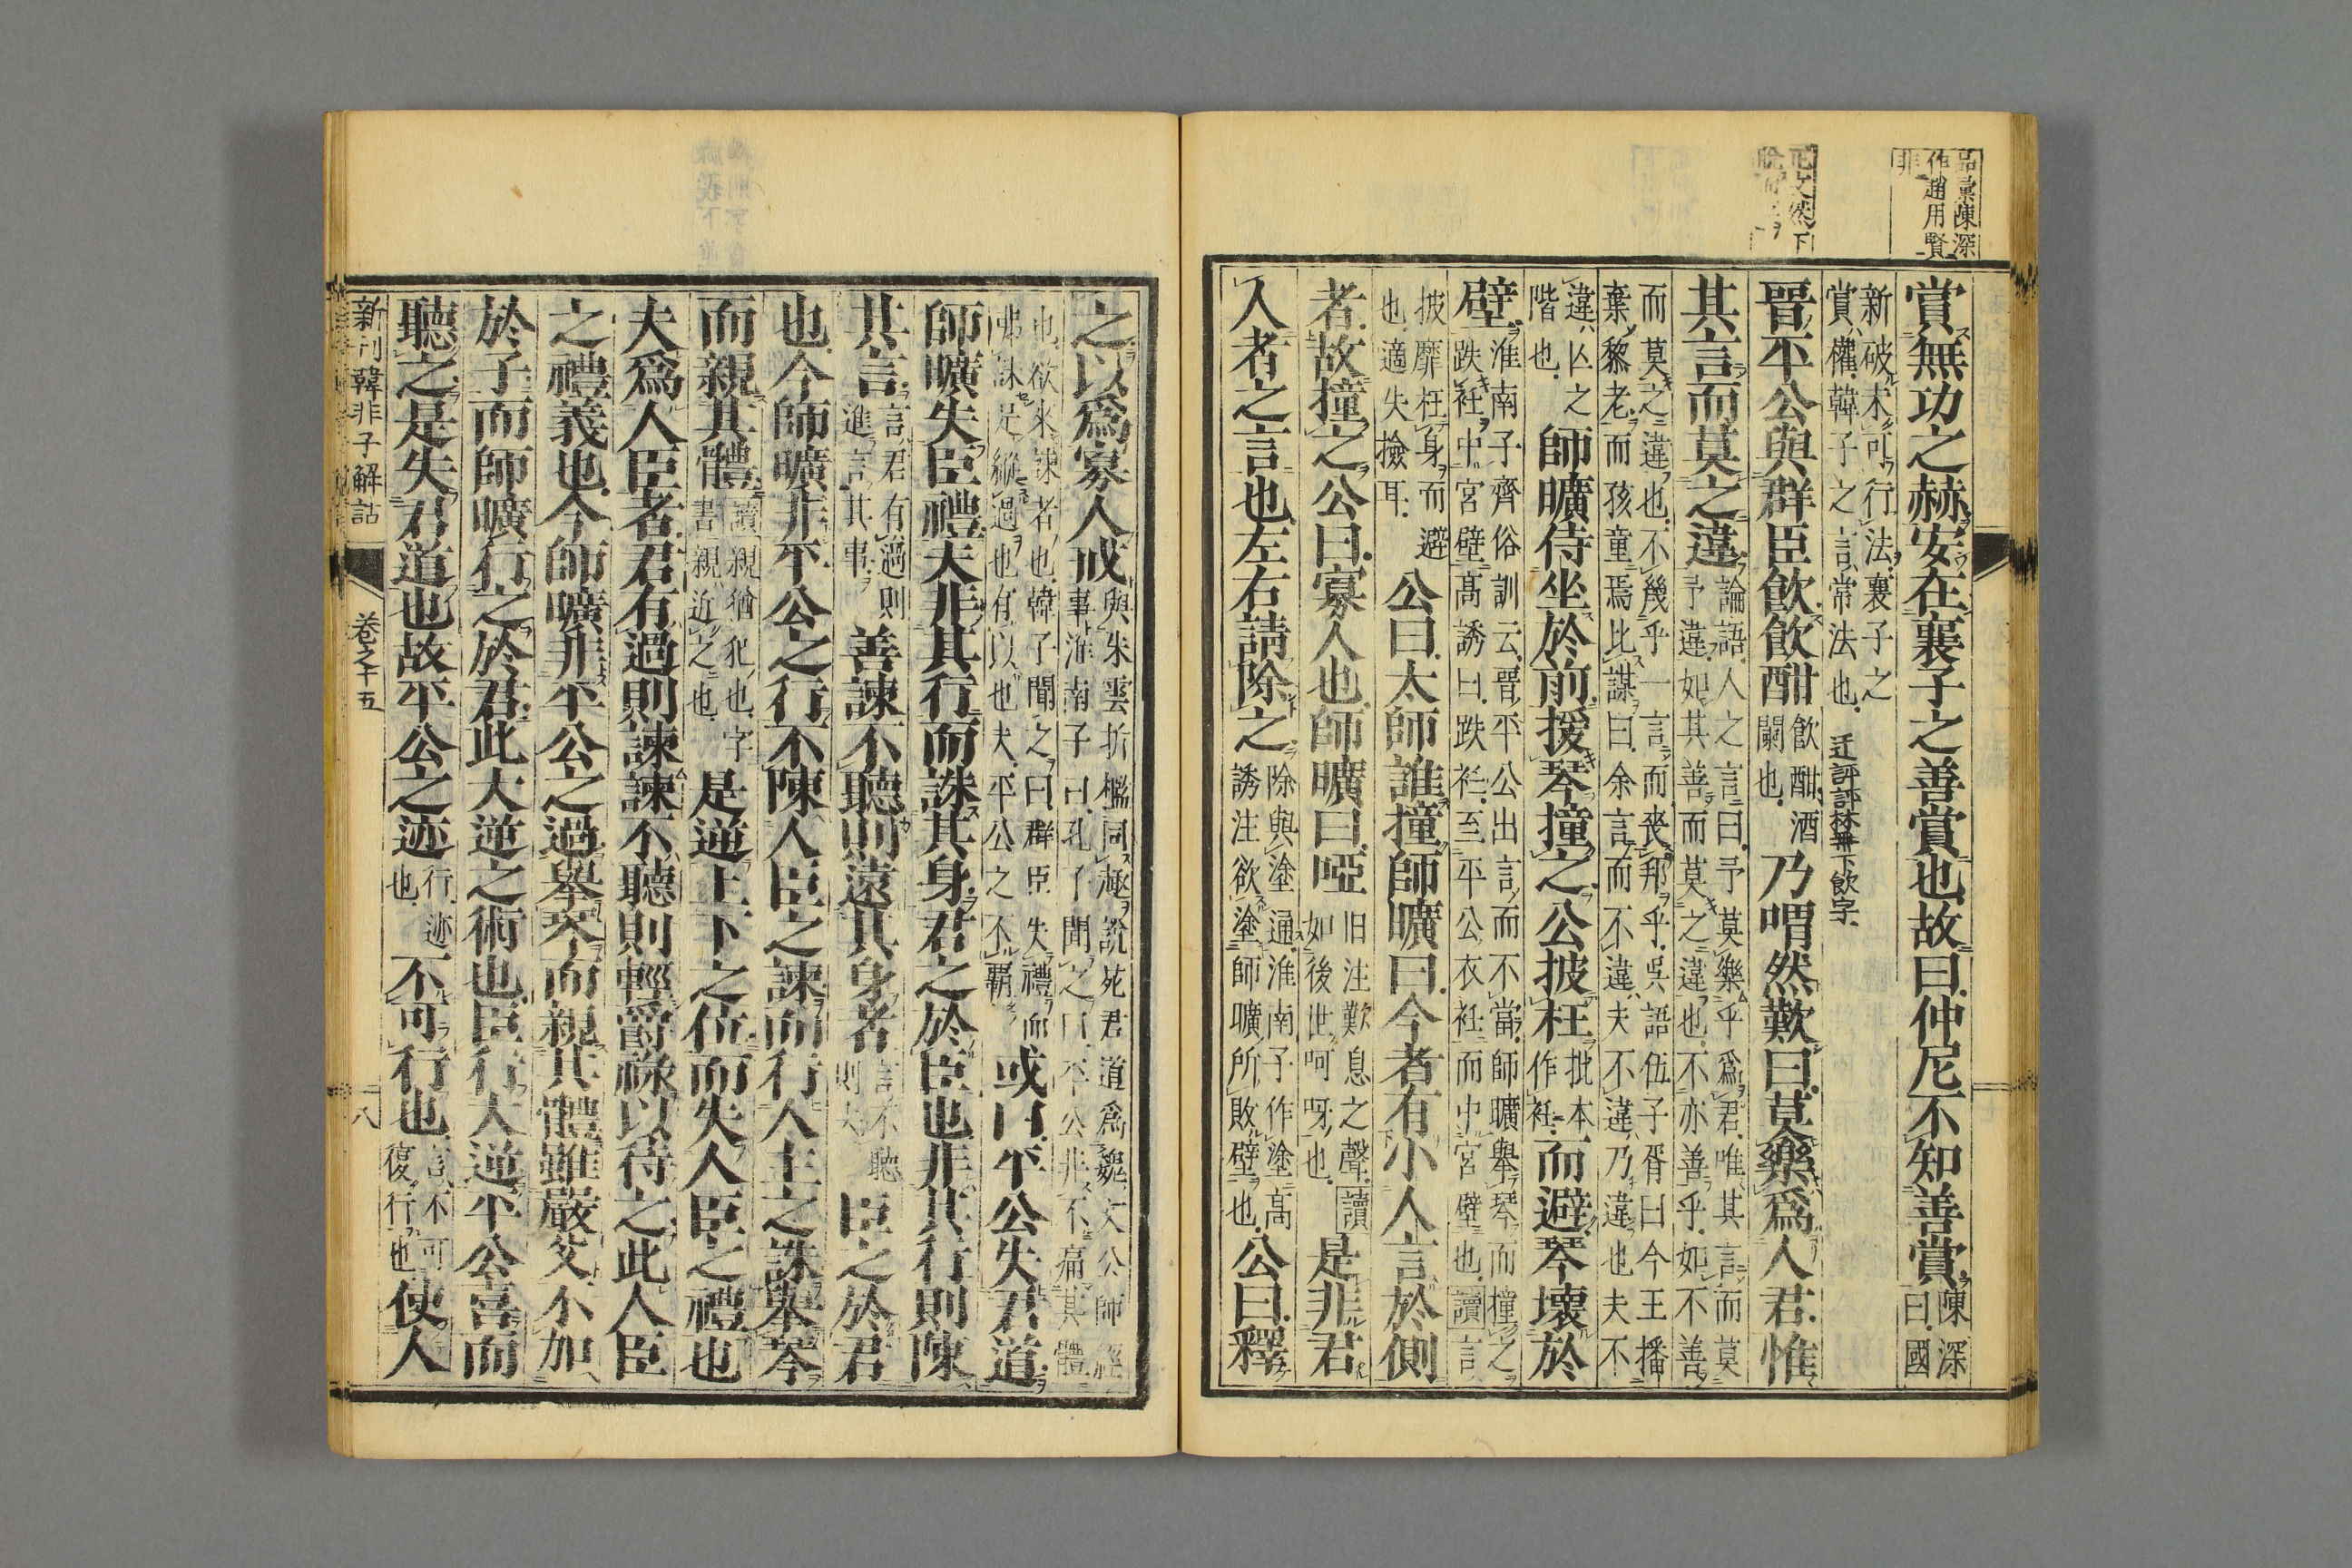 品彙陳深
作趙用賢
非
正文然下
脫而字
賞無功之赫安在襄子之善賞也故曰仲尼不知善賞陳深曰國
新破未可行法襄子之
賞權韓子之言常法也
迂評評林無下飲字
晉平公與群臣飲飲酣飲酣酒闌也乃喟然歎曰莫樂爲人君惟
其言而莫之違論語人之言曰予莫樂乎爲君唯其言而莫予違如其善而莫之違也不亦善乎如不善
而莫之違也不幾乎一言而喪邦乎吳語伍子胥曰今王播
棄黎老而孩童焉比謀曰余言而不違夫不違乃違也夫不
違亾之階也師曠侍坐於前援琴撞之公披衽批本作衽而避琴壞於
壁淮南子齊俗訓云晉平公出言而不當師曠舉琴而撞之跌衽中宮壁高誘曰跌衽至平公衣衽而中宮壁也讀言
披靡枉身而避也適失撿耳公曰太師誰撞師曠曰今者有小人言於側
者故撞之公曰寡人也師曠曰啞旧注歎息之聲讀如後世呵呀也是非君
人者之言也左右請除之除與塗通淮南子作塗高誘注欲塗師曠所敗壁也公曰釋
之以爲寡人戒與朱雲折檻同極說苑君道爲魏文公師經事淮南子曰孔子聞之曰平公非不痛其體
也欲來諫者也韓子聞之曰群臣失禮而
弗誅是縱過也有以也夫平公之不霸或曰平公失君道
師曠失臣禮夫非其行而誅其身君之於臣也非其行則陳
其言言君有過則進言其事善諫不聽則遠其身者言不聽則去臣之於君
也今師曠非平公之行不陳人臣之諫而行人主之誅舉琴
而親其體讀親猶犯也字書親近之也是逆上下之位而失人臣之禮也
夫爲人臣者君有過則諫諫不聽則輕爵祿以待之此人臣
之禮義也今師曠非平公之過舉琴而親其體雖嚴父不加
於子而師曠行之於君此大逆之術也臣行大逆平公喜而
聽之是失君道也故平公之迹行迹也不可行也言不可復行也使人
新刊韓非子解詁
卷之十五
八